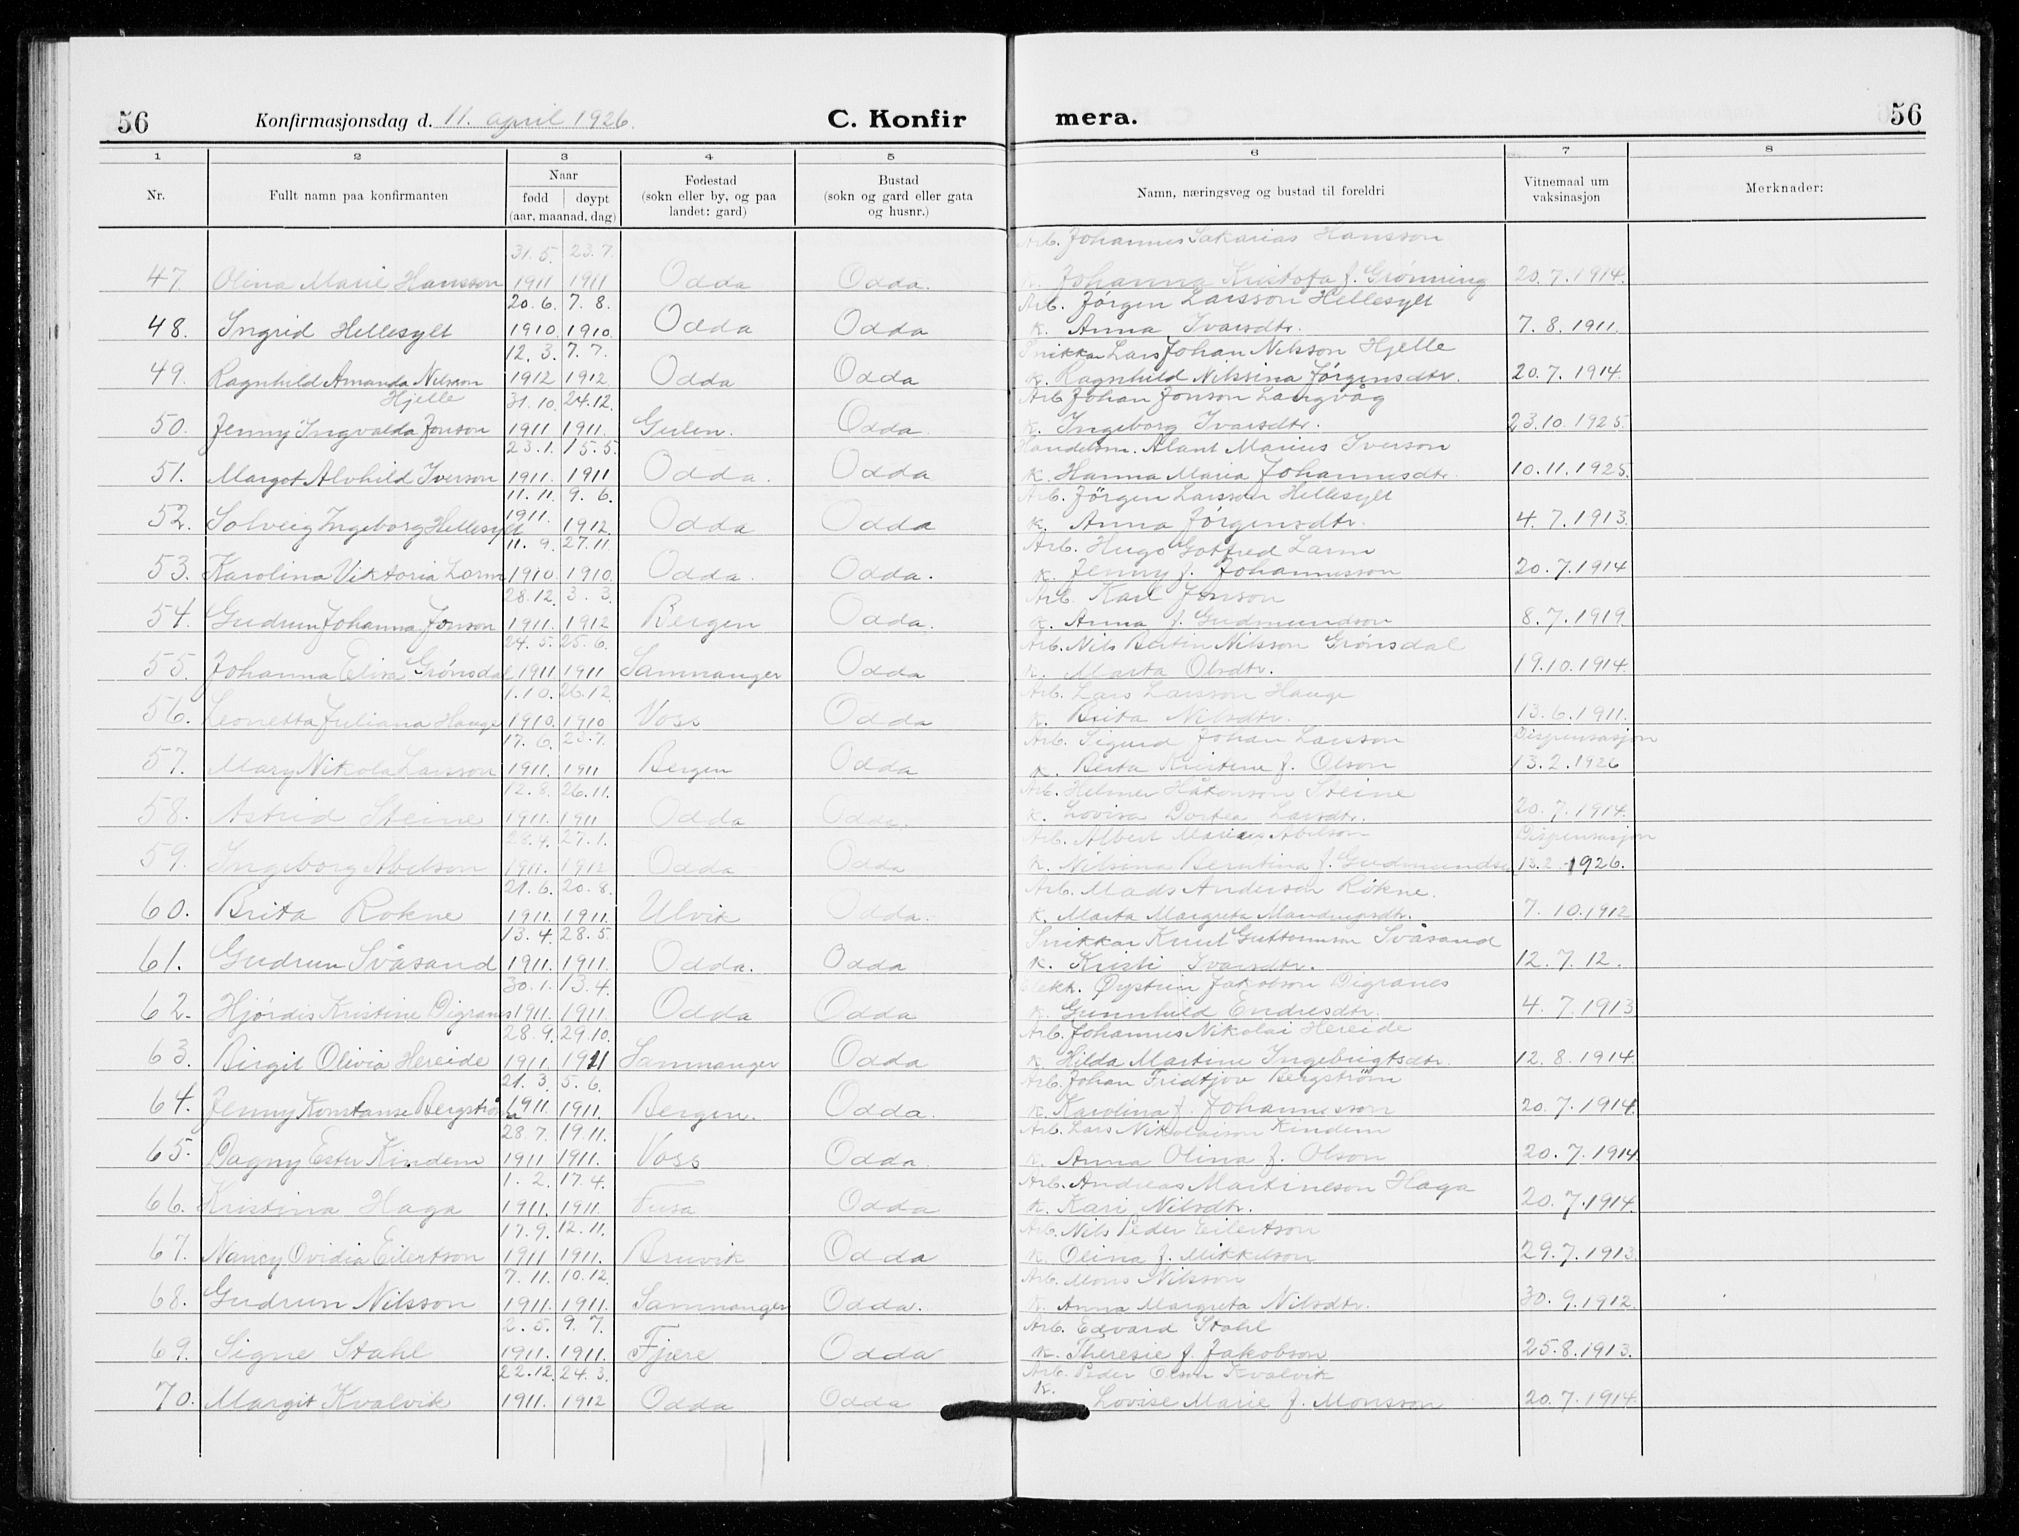 56 Konfirmasjonsdag d. 11. april 1926. C. Konfir mera. 56
1 2 3 4 5 6 7 8
Nr. Fullt namn paa konfirmanten Naar fødd døypt (aar, maanad, dag) Fødestad (sokn eller by, og paa landet: gard) Bustad (sokn og gard eller gata og husnr.) Namn, næringsveg og bustad til foreldri Vitnemaal um vaksinasjon Merknader:
31.5. 23.7. Arb. Johannes Sakarias Hansson
47. Olina Marie Hansson 1911 1911 Odda Odda. k. Johanna Kristofa f. Grønning 20.7.1914.
20.6. 7.8. Arb. Jørgen Larsson Hellesylt
48. Ingrid Hellesylt 1910. 1910. Odda Odda k. Anna Ivarsdtr. 7.8.1911.
12.3. 7.7. Snikkar Lars Johan Nilsson Hjelle
49. Ragnhild Amanda Nilsson 1912 1912. Odda Odda k. Ragnhild Nilsina Jørgensdtr. 20.7.1914.
Hjelle 31.10. 24.12. Arb Johan Jonson Langvåg
50. Jenny Ingvalda Jonson 1911 1911. Gulen. Odda. k. Ingeborg Ivarsdtr. 23.10.1925.
23.1. 15.5. Handelsm. Marius Iverson
51. Margot Alvhild Iverson 1911. 1911 Odda. Odda k. Hanna Maria Johannesdtr. 10.11.1925.
11.11. 9.6. Arb. Jörgen Larsson Hellesylt
52. Solveig Ingeborg Hellesylt 1911. 1912. Odda Odda k. Anna Jørgensdtr. 4.7.1913.
11.9. 27.11. Arb. Hugo Gotfred Larm
53. Karolina Viktoria Larm 1910. 1910. Odda. Odda. k. Jenny f. Johannesson 20.7.1914
28.12. 3.3. Arb. Karl Jonson
54. Gudrun Johanna Jonson 1911. 1912 Bergen Odda. k. Anna f. Gudmundson 8.7.1919.
24.5. 25.6. Arb. Nils Bertin Nilsson Grønsdal
55. Johanna Elisa Grønsdal 1911 1911 Sammanger Odda k. Marta Olsdtr. 19.10.1914.
1.10. 26.12 Arb. Lars Larsson Hauge
56. Leonetta Juliana Hauge 1910. 1910 Voss Odda k. Brita Nilsdtr. 13.6.1911.
17.6. 23.7. Arb. Sigurd Johan Larsson Dispensasjon
57. Mary Nikola Larsson 1911. 1911 Bergen Odda k. Berta Kristine f. Olson 13.2.1926
12.8. 26.11. Arb. Helmer Håkonson Steine
58. Astrid Steine 1911. 1911 Odda Odda. k. Lovisa Dortea Larsdtr. 20.7.1914.
28.4. 27.1. Arb. Albert Marius Abelson Dispensasjon
59. Ingeborg Abelson 1911. 1912 Odda Odda k. Nilsina Berntina f. Gudmundsen 13.2.1926.
21.6. 20.8. Arb. Mads Anderson Rökne.
60. Brita Rokne 1911. 1911. Ulvik Odda. k. Marta Margreta 7.10.1912
13.4. 28.5. Snikkar Knut Guttormson Svåsand
61. Gudrun Svåsand 1911. 1911. Odda. Odda k. Kristi Ivarsdtr. 12.7.12.
30.1. 13.4. Elekk. Øystein Jakobson Digranes
62. Hjørdis Kristine Digranes 1911. 1911. Odda Odda k. Gunnhild Endresdtr. 4.7.1913
28.9. 29.10. Arb. Johannes Nikolai Hereide
63. Birgit Olivia Hereide 1911. 1911 Sammanger Odda k Hilda Martine Ingebrigtsdtr. 12.8.1914.
21.3. 5.6. Arb. Johan Fridtjov Bergström
64. Jenny Konstanse Bergström 1911. 1911. Bergen. Odda. k. Karolina f. Johannesson 20.7.1914.
28.7. 19.11. Arb. Lars Nikolaison Kindem
65. Dagny Ester Kindem 1911 1911. Voss Odda k. Anna Olina f. Olson 20.7.1914
1.2. 17.4. Arb. Andreas Martineson Haga
66. Kristina Haga 1911. 1911. Fusa Odda k. Kari Nilsdtr. 20.7.1914.
17.9. 12.11. Arb. Nils Peder Eilertson
67. Nancy Ovidia Eilertson 1911 1911. Bruvik Odda k Olina f. Mikkelson 29.7.1913.
7.11. 10.12. Arb. Mons Nilsson
68. Gudrun Nilsson 1911. 1911. Sammanger Odda. k. Anna Margreta Nilsdtr. 30.9.1912.
2.5. 9.7. Arb. Edvard Stahl
69. Signe Stahl 1911. 1911. Fjære Odda k Theresie f. Jakobson 25.8.1913.
22.12. 24.3. Arb. Peder Olson Kvalvik
70. Margit Kvalvik 1911. 1912 Odda Odda k. Lovise Marie f. Monsson 20.7.1914.